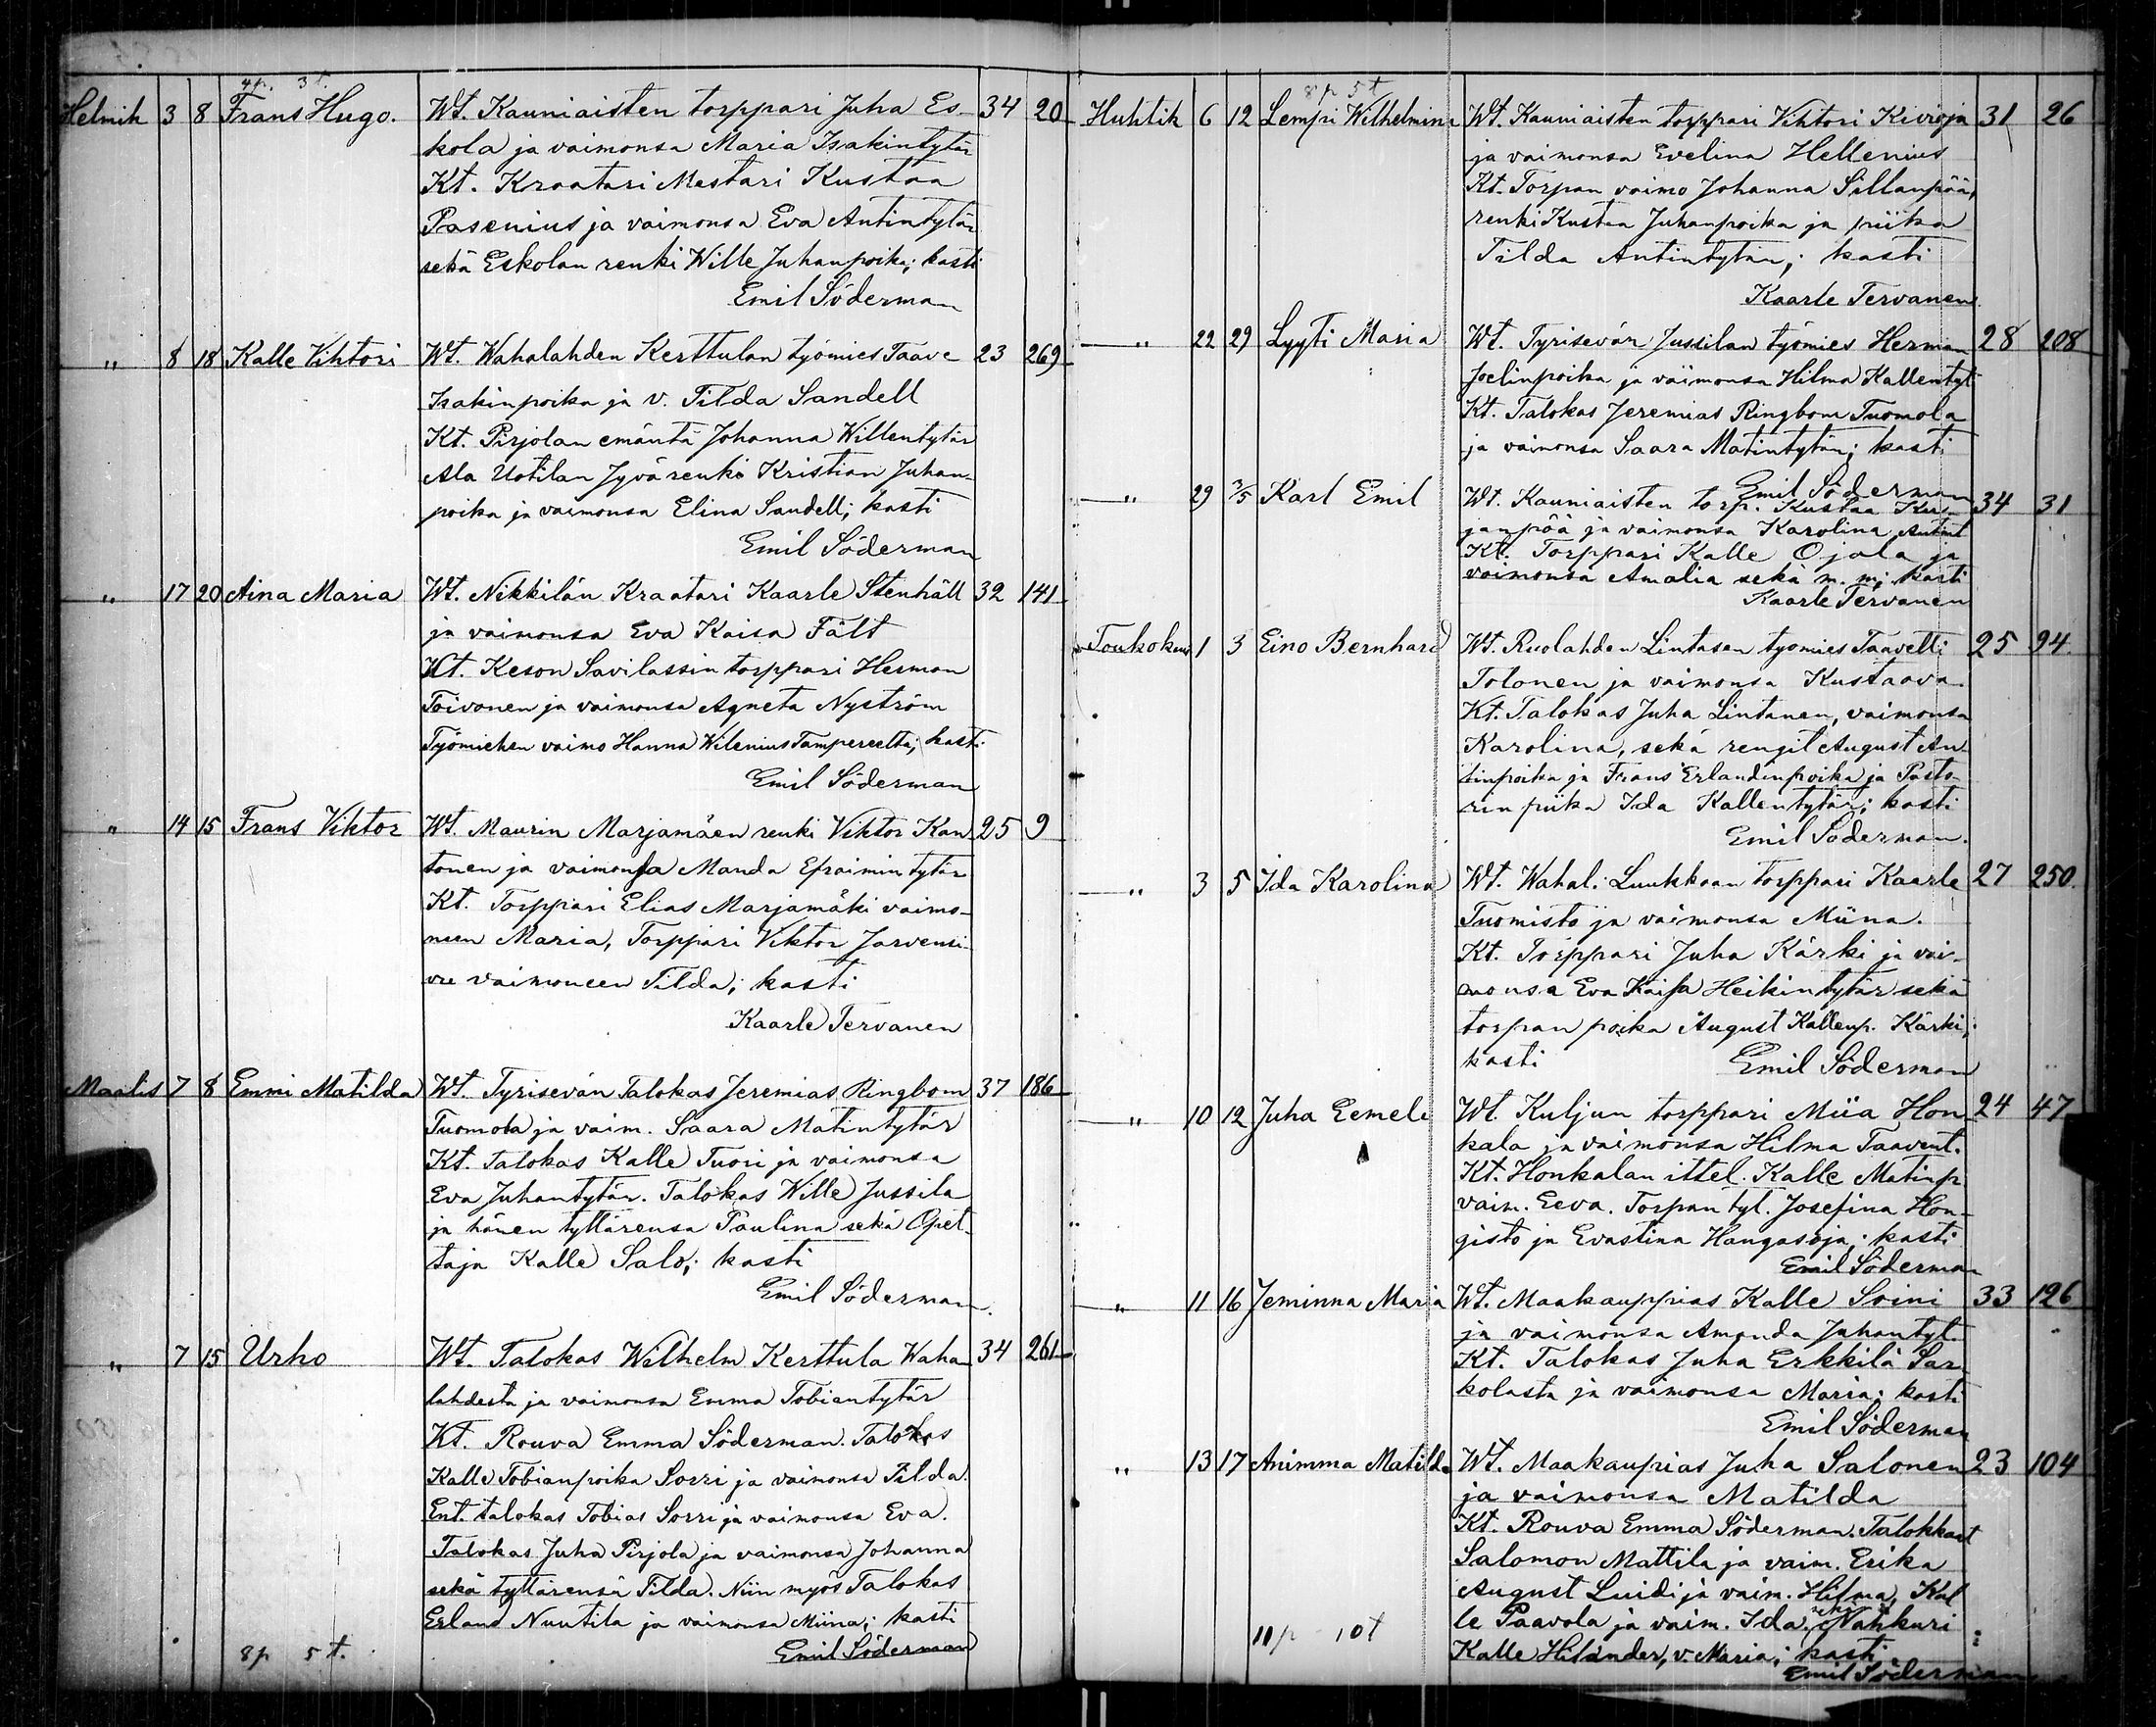 4p. 3t.
Helmik 3 8 Frans Hugo. Wt. Kauniaisten torppari Juha Es- 34 20
kola ja vaimonsa Maria Isakintytär
Kt. Kraatari Mestari Kustaa
Pasenius ja vaimonsa Eva Antintytär
sekä Eskolan renki Wille Juhanpoika; kasti
Emil Söderman
" 8 18 Kalle Vihtori Wt. Wahalahden Kerttulan työmies Taave 23 269
Isakinpoika ja v. Tilda Sandell
Kt. Pirjolan emäntä Johanna Willentytär
Ala Uotilan Jyvärenki Kristian Juhan-
poika ja vaimonsa Elina Sandell; kasti
Emil Söderman
" 17 20 Aina Maria Wt. Nikkilän Kraatari Kaarle Stenhäll 32 141
ja vaimonsa Eva Kaisa Fält
Kt. Keson Savilassin torppari Herman
Toivonen ja vaimonsa Agneta Nyström
Työmiehen vaimo Hanna Wilenius Tampereelta; kasti
Emil Söderman
" 14 15 Frans Viktor Wt. Maurin Marjamäen renki Viktor Kan- 25 9
tonen ja vaimonsa Manda Efraimintytär
Kt. Torppari Elias Marjamäki vaimo-
neen Maria, Torppari Viktor Jarvensi-
vu vaimoneen Tilda; kasti
Kaarle Tervanen
Maalis 7 8 Emmi Matilda Wt. Tyrisevän Talokas Jeremias Ringbom 37 186
Tuomola ja vaim. Saara Matintytär
Kt. Talokas Kalle Tuori ja vaimonsa
Eva Juhantytär. Talokas Wille Jussila
ja hänen tyttärensä Paulina sekä Opet-
taja Kalle Salo; kasti
Emil Söderman.
" 7 15 Urho Wt. Talokas Wilhelm Kerttula Waha- 34 261
lahdesta ja vaimonsa Emma Tobiantytär
Kt. Rouva Emma Söderman. Talokas
Kalle Tobianpoika Sorri ja vaimonsa Tilda.
Ent. talokas Tobias Sorri ja vaimonsa Eva.
Talokas Juha Pirjola ja vaimonsa Johanna
sekä tyttärensä Tilda. Niin myös Talokas
Erland Nuutila ja vaimonsa Miina; kasti
8p 5t. Emil Söderman
8p 5t
Huhtik 6 12 Lempi Wilhelmina Wt. Kauniaisten torppari Vihtori Kivioja 31 26
ja vaimonsa Evelina Hellenius
Kt. Torpan vaimo Johanna Sillanpää,
renki Kustaa Juhanpoika ja piika
Tilda Antintytär; kasti
Kaarle Tervanen
" 22 29 Lyyti Maria Wt. Tyrisevän Jussilan työmies Herman 28 208
Joelinpoika ja vaimonsa Hilma Kallentyt
Kt. Talokas Jeremias Ringbom Tuomola
ja vaimonsa Saara Matintytär; kasti
Emil Söderman
" 29 3/5 Karl Emil Wt. Kauniaisten torp. Kustaa Ku- 34 31
janpää ja vaimonsa Karolina Antint
Kt. Torppari Kalle Ojala ja
vaimonsa Amalia sekä m. m; kasti
Kaarle Tervanen
Toukokuu 1 3 Eino Bernhard Wt. Ruolahden Lintasen tyomies Taavetti 25 94
Tolonen ja vaimonsa Kustaava.
Kt. Talokas Juha Lintanen, vaimonsa
Karolina, sekä rengit August An-
tinpoika ja Frans Erlandinpoika ja Pasto-
rin piika Ida Kallentytär; kasti
Emil Söderman.
" 3 5 Ida Karolina Wt. Wahal. Luukkaan torppari Kaarle 27 250
Tuomisto ja vaimonsa Miina.
Kt. Torppari Juha Kärki ja vai-
monsa Eva Kaisa Heikintytär sekä
torpan poika August Kallenp. Kärki;
kasti Emil Söderman
" 10 12 Juha Eemeli Wt. Kuljun torppari Miia Hon- 24 47
kala ja vaimonsa Hilma Taavent.
Kt. Honkalan ittel. Kalle Matinp.
vaim. Eeva. Torpan tyt. Josefina Hon-
gisto ja Evastina Hangasoja; kasti
Emil Söderman
" 11 16 Jeminna Maria Wt. Maakauppias Kalle Soini 33 126
ja vaimonsa Amanda Juhantyt.
Kt. Talokas Juha Erkkilä Sar-
kolasta ja vaimonsa Maria; kasti
Emil Söderman
" 13 17 Animma Matilda Wt. Maakaupias Juha Salonen 23 104
ja vaimonsa Matilda
Kt. Rouva Emma Söderman. Talokkaat
Salomon Mattila ja vaim. Erika
August Luidi ja vaim. Hilma, Kal
le Paavola ja vaim. Ida. sekä Nahkuri
11p 10t Kalle Hilander, v. Maria; kasti
Emil Söderman